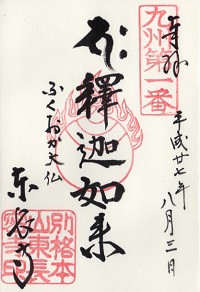 奉拝
平成廿七年
八月三日
九州第一番
釋迦如来
ふくおか大仏
東長寺
別格本
山東長
密寺印